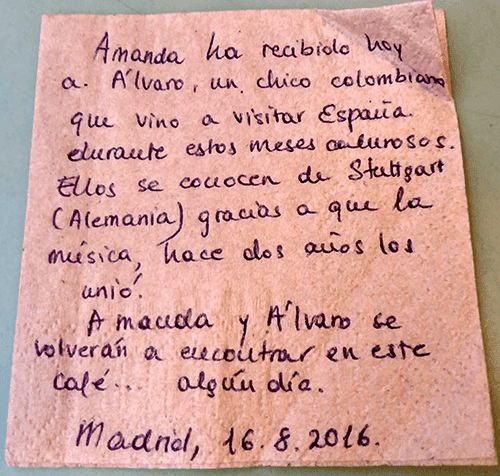 Amanda ha recibido hoy
a Álvaro, un chico colombiano
que vino a visitar España
durante estos meses calurosos.
Ellos se conocen de Stuttgart
(Alemania) gracias a que la
música, hace dos años los
unió.
Amanda y Álvaro se
volverán a encontrar en este
café... algún día.
Madrid, 16.8.2016.